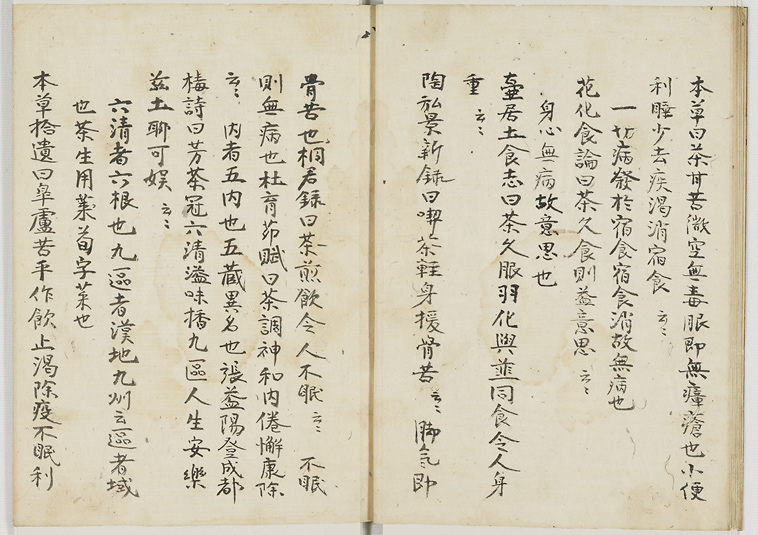 本草曰茶甘苦微空無毒服即無瘡瘻也小便
利睡少去疾渇消宿食云々
一切病發於宿食宿食消故無病也
花化食論曰茶久食則益意思云々
身心無病故意思也
壷居士食志曰茶久服羽化與韮同食令人身
重云々
陶弘景新録曰喫茶輕身援骨苦云々脚氣即
骨苦也桐君録曰茶煎飲令人不眠云々不眠
則無病也杜育荈賦曰茶調神和内倦懈康除
云々内者五内也五蔵異名也張孟陽登成都
楼詩曰芳茶冠六清溢味播九區人生安樂
茲土聊可娯云々
六清者六根也九區者漢地九州云區者域
也茶生用菜菊字菜也
本草拾遺曰皐蘆苦平作飲止渇除疫不眠利